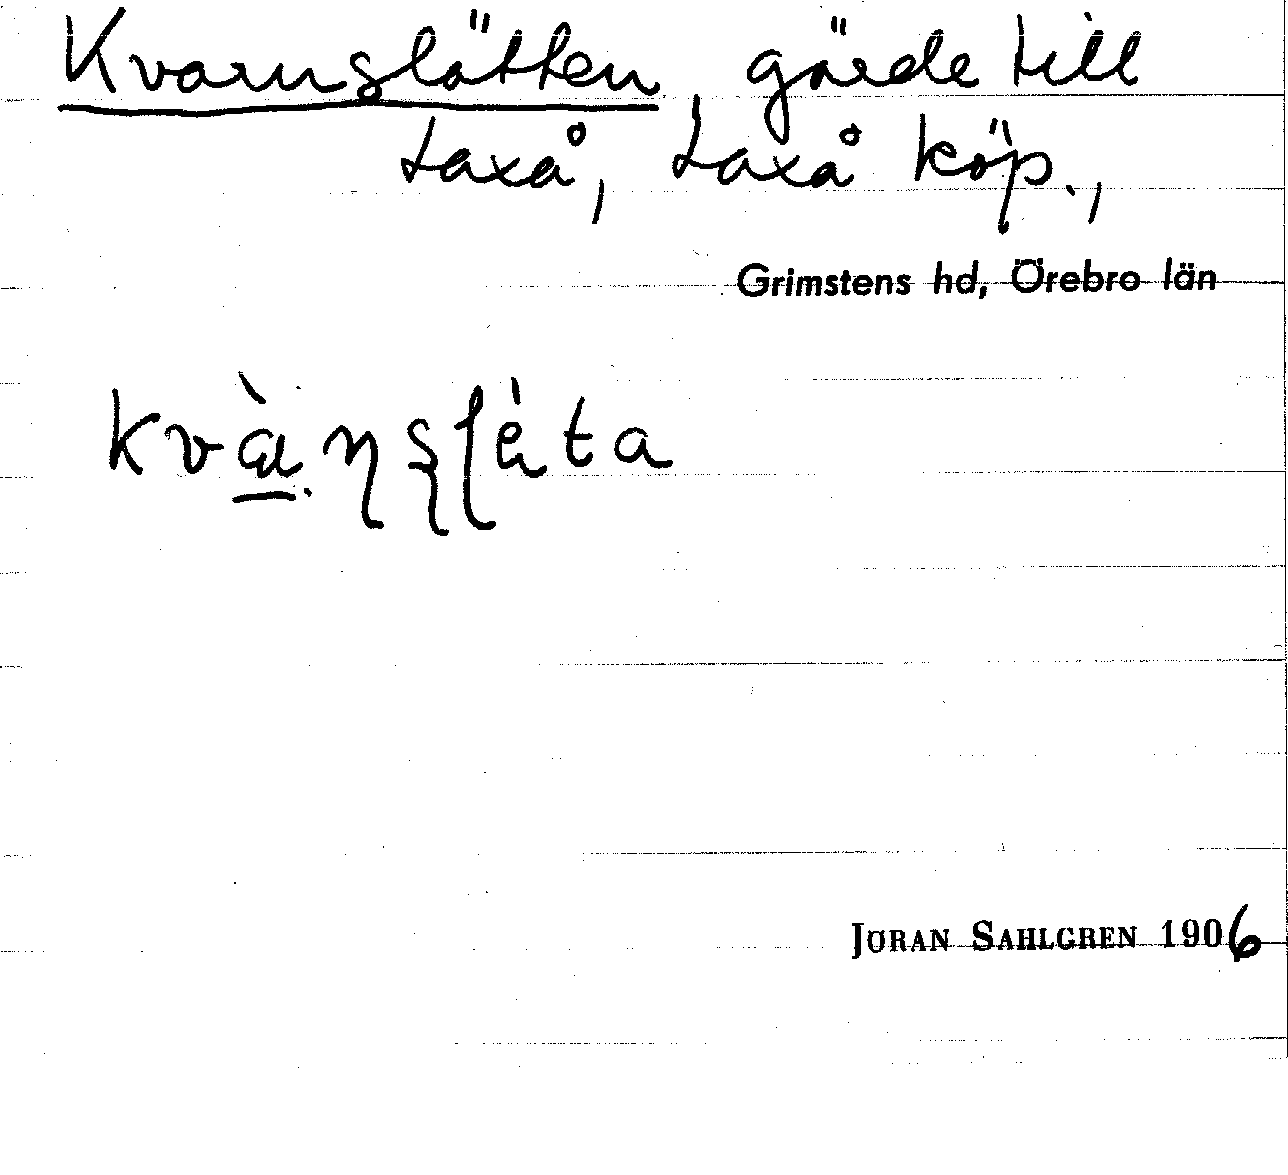 Kvarnslätten, gärde till
Laxå, Laxå köp.,
Grimstens hd, Örebro län
kvàɳʂɭèta
JÖRAN SAHLGREN 1906